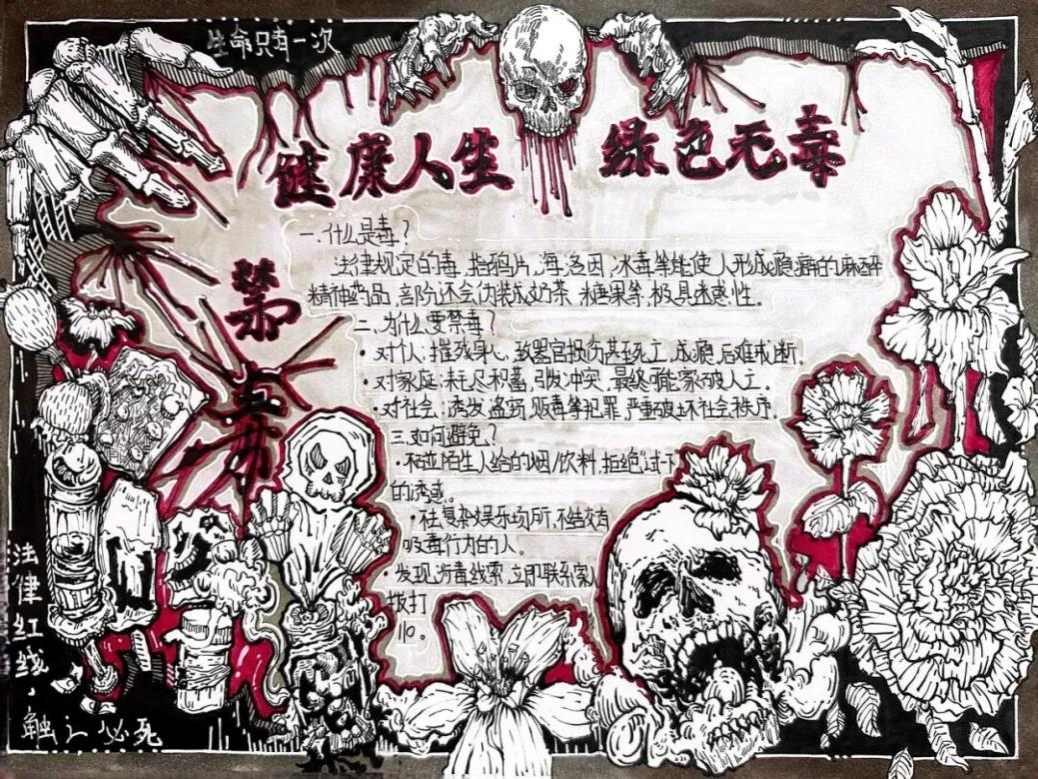 生命只有一次
健康人生 绿色无毒
禁毒
一.什么是毒?
法律规定的毒,指鸦片,海洛因,冰毒等能使人形成瘾癖的麻醉
精神药品,部分还会伪装成奶茶、糖果等,极具迷惑性。
二、为什么要禁毒?
·对个人:摧残身心,致器官损伤甚至死亡,成瘾后难戒断.
·对家庭:耗尽积蓄,引发冲突,最终可能家破人亡.
·对社会:诱发盗窃,贩毒等犯罪,严重破坏社会秩序.
三.如何避免?
·不碰陌生人给的烟/饮料,拒绝"试一下
的诱惑。
·不去复杂娱乐场所,不结交有
吸毒行为的人。
·发现涉毒线索,立即联系家人
拨打
110。
法律红线,
触之必死